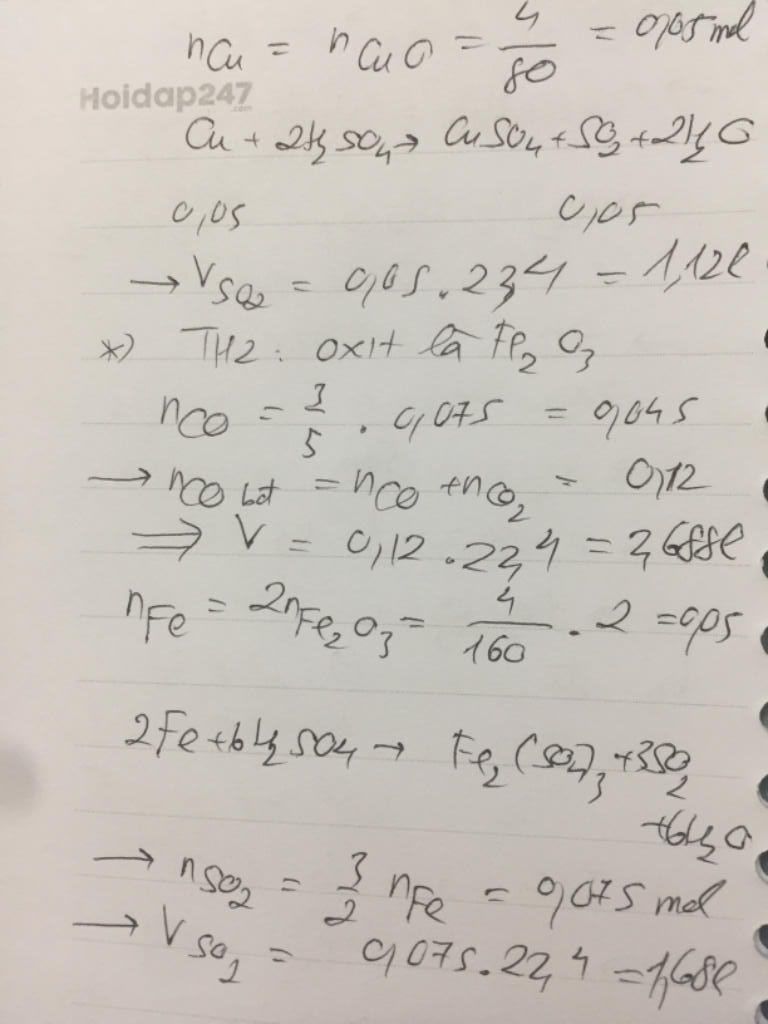 nCu = nCuO = 4/80 = 0,05 mol
Hoidap247.com
Cu + 2H2SO4 → CuSO4 + SO2 + 2H2O
0,05 0,05
→ VSO2 = 0,05 . 22,4 = 1,12l
*) TH2: oxit là Fe2O3
nCO = 3/5 . 0,075 = 0,045
→ nCO bđ = nCO + nCO2 = 0,12
⇒ V = 0,12 . 22,4 = 2,688l
nFe = 2nFe2O3 = 4/160 . 2 = 0,05
2Fe + 6H2SO4 → Fe2(SO4)3 + 3SO2
+ 6H2O
→ nSO2 = 3/2 nFe = 0,075 mol
→ VSO2 = 0,075 . 22,4 = 1,68l